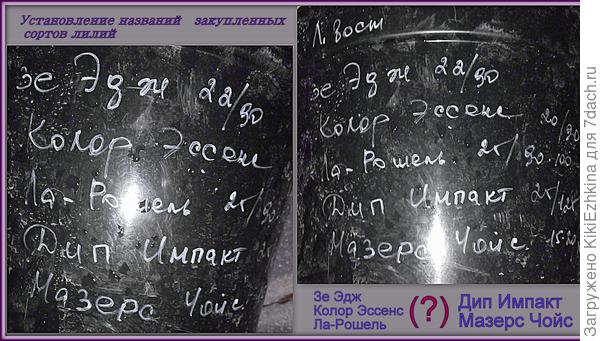 Установление названий закупленных
сортов лилий
Зе Эдж 22/90
Колор Эссенс
Ла-Рошель 25/90
Дип Импакт
Мазерс Чойс
Л. Вост
Зе Эдж 22/90
Колор Эссенс 20/90
Ла-Рошель 25/90-100
Дип Импакт 25/125
Мазерс Чойс 15-20
Зе Эдж
Колор Эссенс
Ла-Рошель
(?)
Дип Импакт
Мазерс Чойс
Загружено KikiEzhkina для 7dach.ru